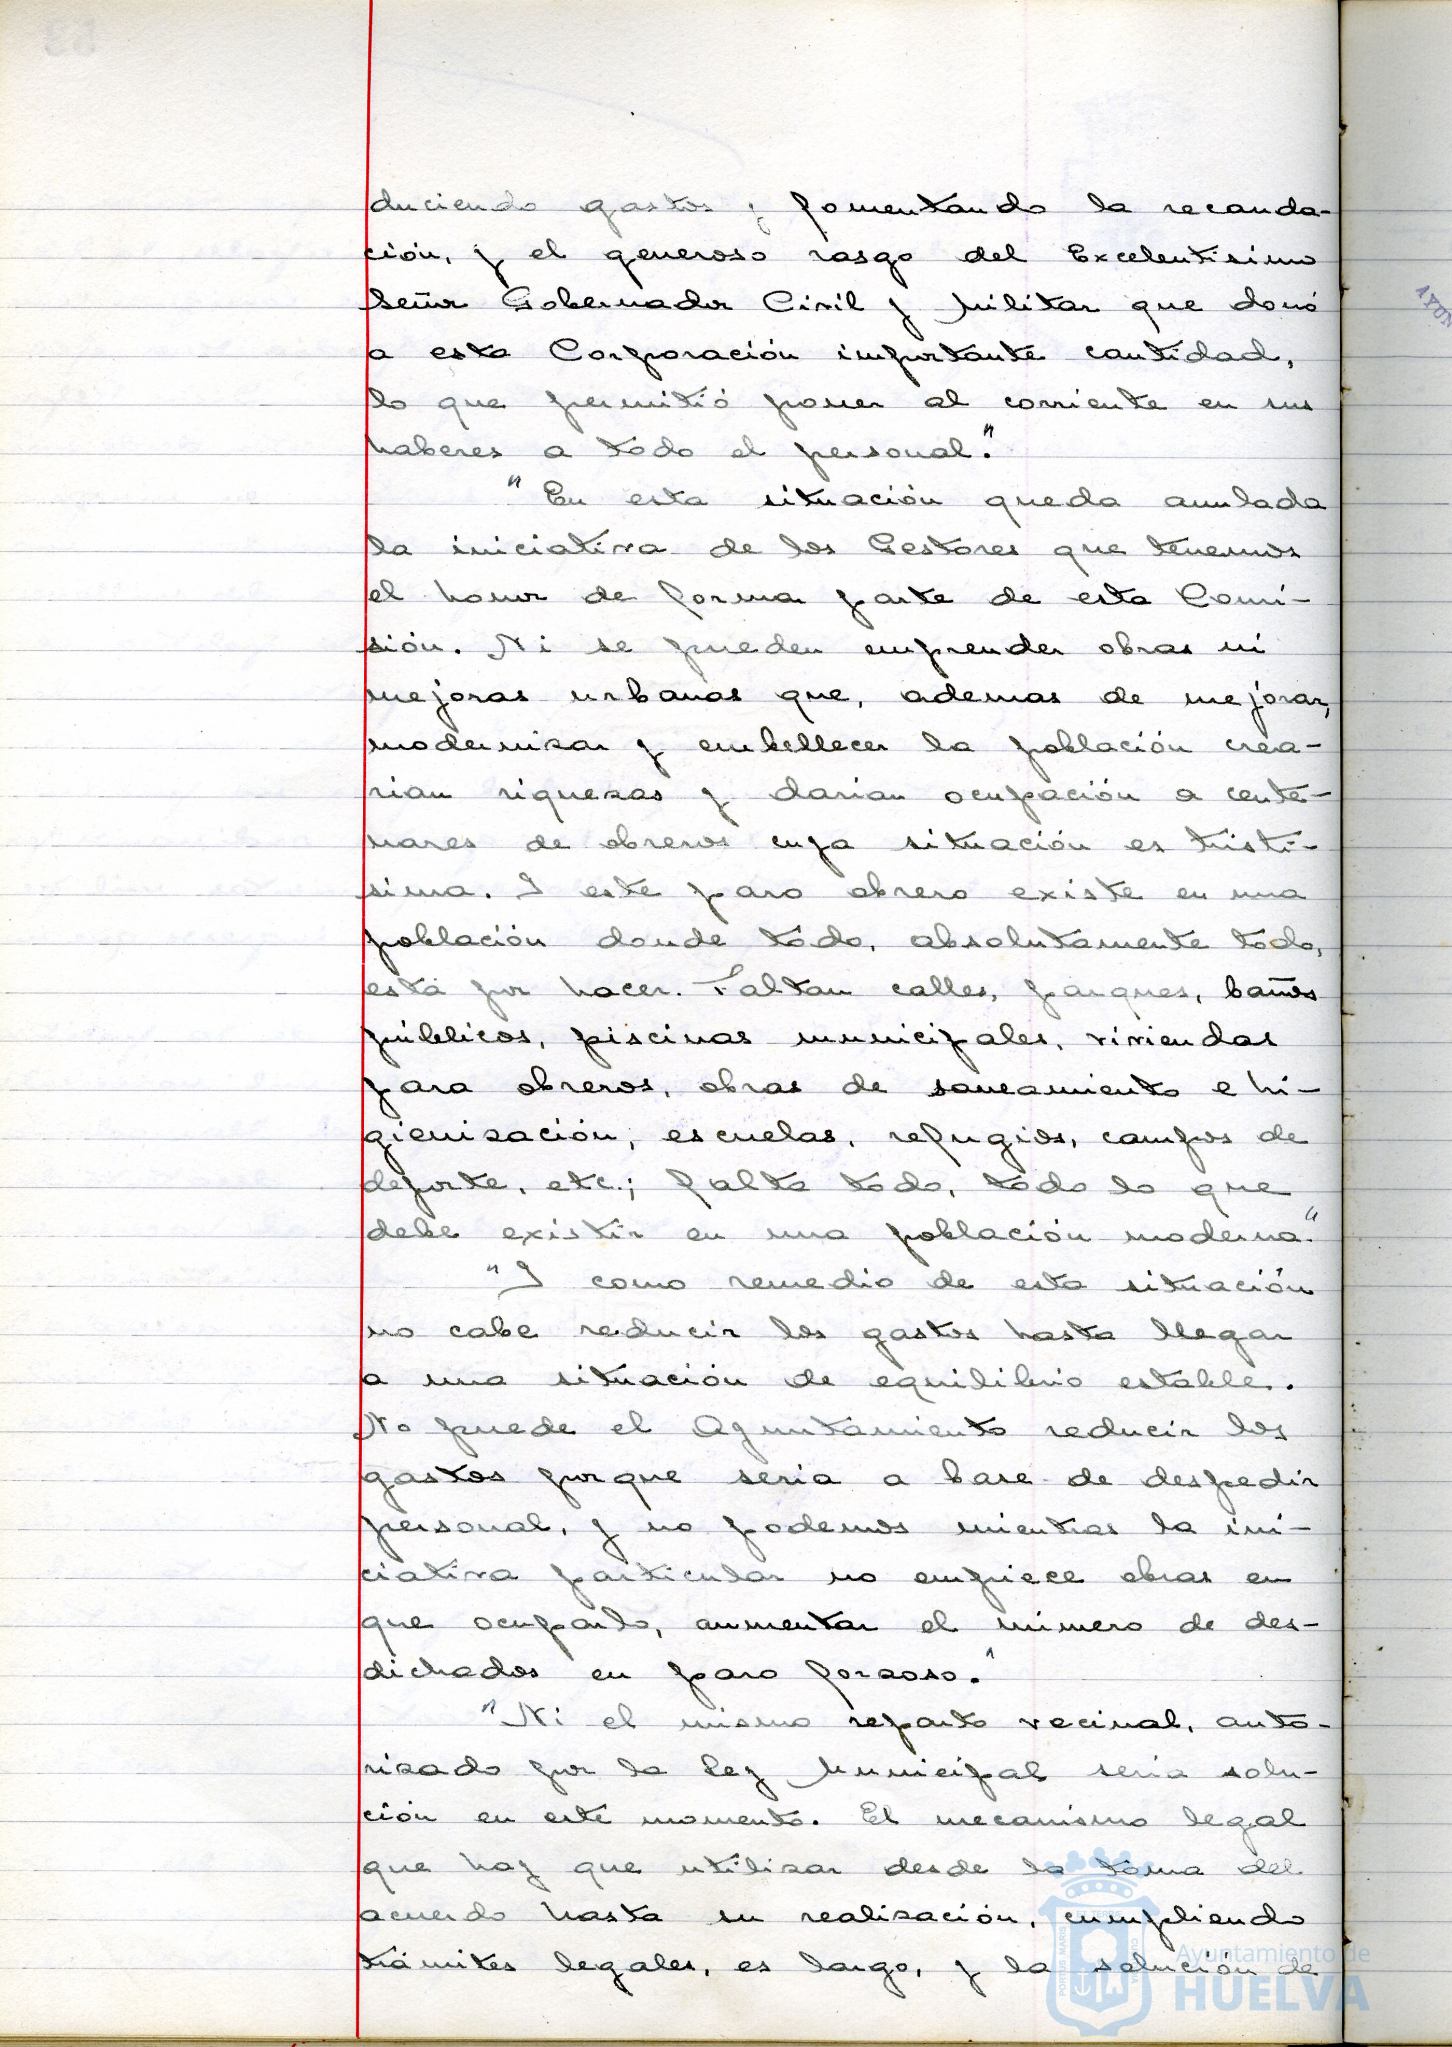 duciendo gastos y fomentando la recauda-
ción, y el generoso rasgo del Excelentisimo
Señor Gobernador Civil y Militar que donó
a esta Corporación importante cantidad,
lo que permitió poner al corriente en sus
haberes a todo el personal."
"En esta situación queda anulada
la iniciativa de los Gestores que tenemos
el honor de formar parte de esta Comi-
sión. Ni se pueden emprender obras ni
mejoras urbanas que, ademas de mejorar,
modernizar y embellecer la población crea-
rian riquezas y darian ocupación a cente-
nares de obreros cuya situación es tristi-
sima. Y este paro obrero existe en una
población donde todo, absolutamente todo,
está por hacer. Faltan calles, parques, baños
públicos, piscinas municipales, viviendas
para obreros, obras de saneamiento e hi-
gienización, escuelas, refugios, campos de
deporte, etc.; falta todo, todo lo que
debe existir en una población moderna."
"Y como remedio de esta situación
no cabe reducir los gastos hasta llegar
a una situación de equilibrio estable.
No puede el Ayuntamiento reducir los
gastos porque seria a base de despedir
personal, y no podemos mientras la ini-
ciativa particular no empiece obras en
que ocuparlo, aumentar el número de des-
dichados en paro forzoso."
"Ni el mismo reparto vecinal, auto-
rizado por la Ley Municipal seria solu-
ción en este momento. El mecanismo legal
que hay que utilizar desde la toma del
acuerdo hasta su realización, cumpliendo
trámites legales, es largo, y la solución de
Ayuntamiento de
HUELVA
AYUN